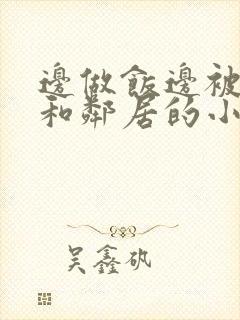 邊做飯邊被
和鄰居的小
吴鑫矾